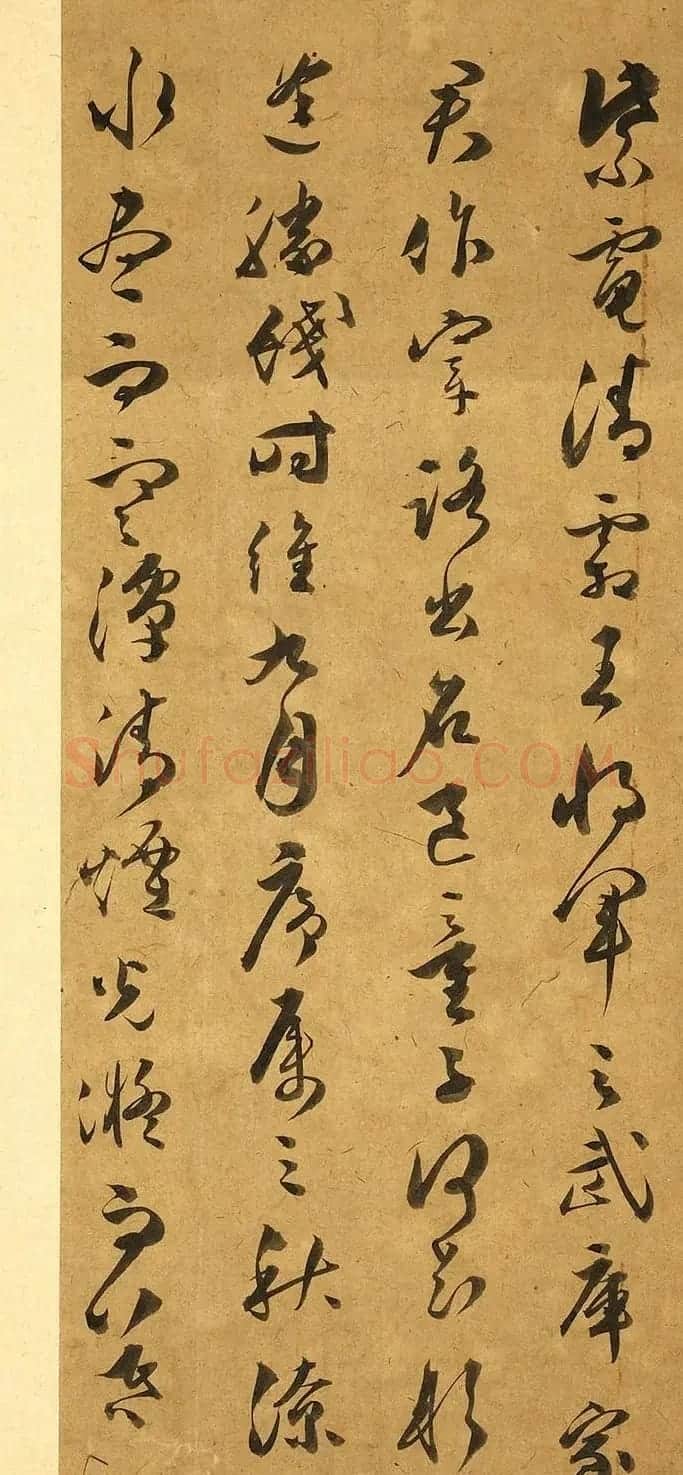 紫電清霜王將軍之武庫家
君作宰路出名區童子何知躬
逢勝餞時維九月序屬三秋潦
水盡而寒潭清煙光凝而暮
Shufaziliao.COM